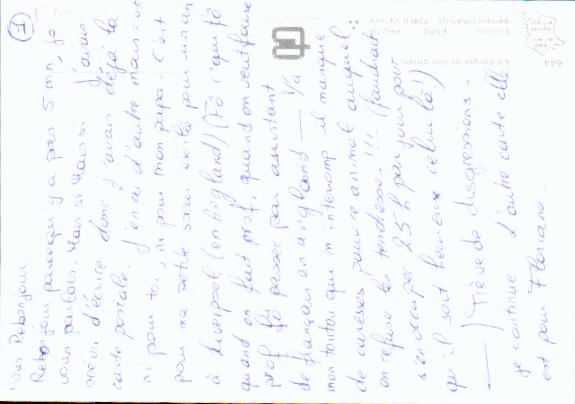 1
Rebonjour.
Rebonjour parce qu'y a pas 5 mn, je
vous parlais. Mais si Mais si. J'avais
prévu d'écrire donc j'avais déjà la
carte postale. J'en ai d'autre mais c'est
ni pour toi, ni pour mon papa. C'est
pour ma petite soeur exilée pour un an
à Liverpool (en Angland) (Fô c'qui fô
quand on fait prof, quand on veut faire
prof fô passer par assistant
de français en angland —
mon toutou qui m'interromp il manque
de caresses pauvre animal auquel
on refuse les tendresses !!! (faudrait
s'en occuper 25 h par jour pour
qu'il soit heureux celui là!)
—) Trève de disgressions -
je continue l'autre carte elle
est pour Floriane -
644 Le berger et son chien
Editions EXPO - PHOTO
Bernard GRANGE - 73450